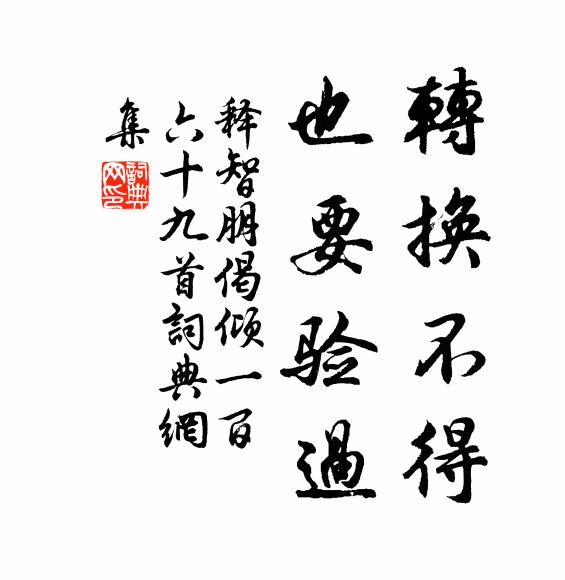 轉換不得
也要验過
释智朋偈倾一百
六十九首詞典網
集
詞典
网印